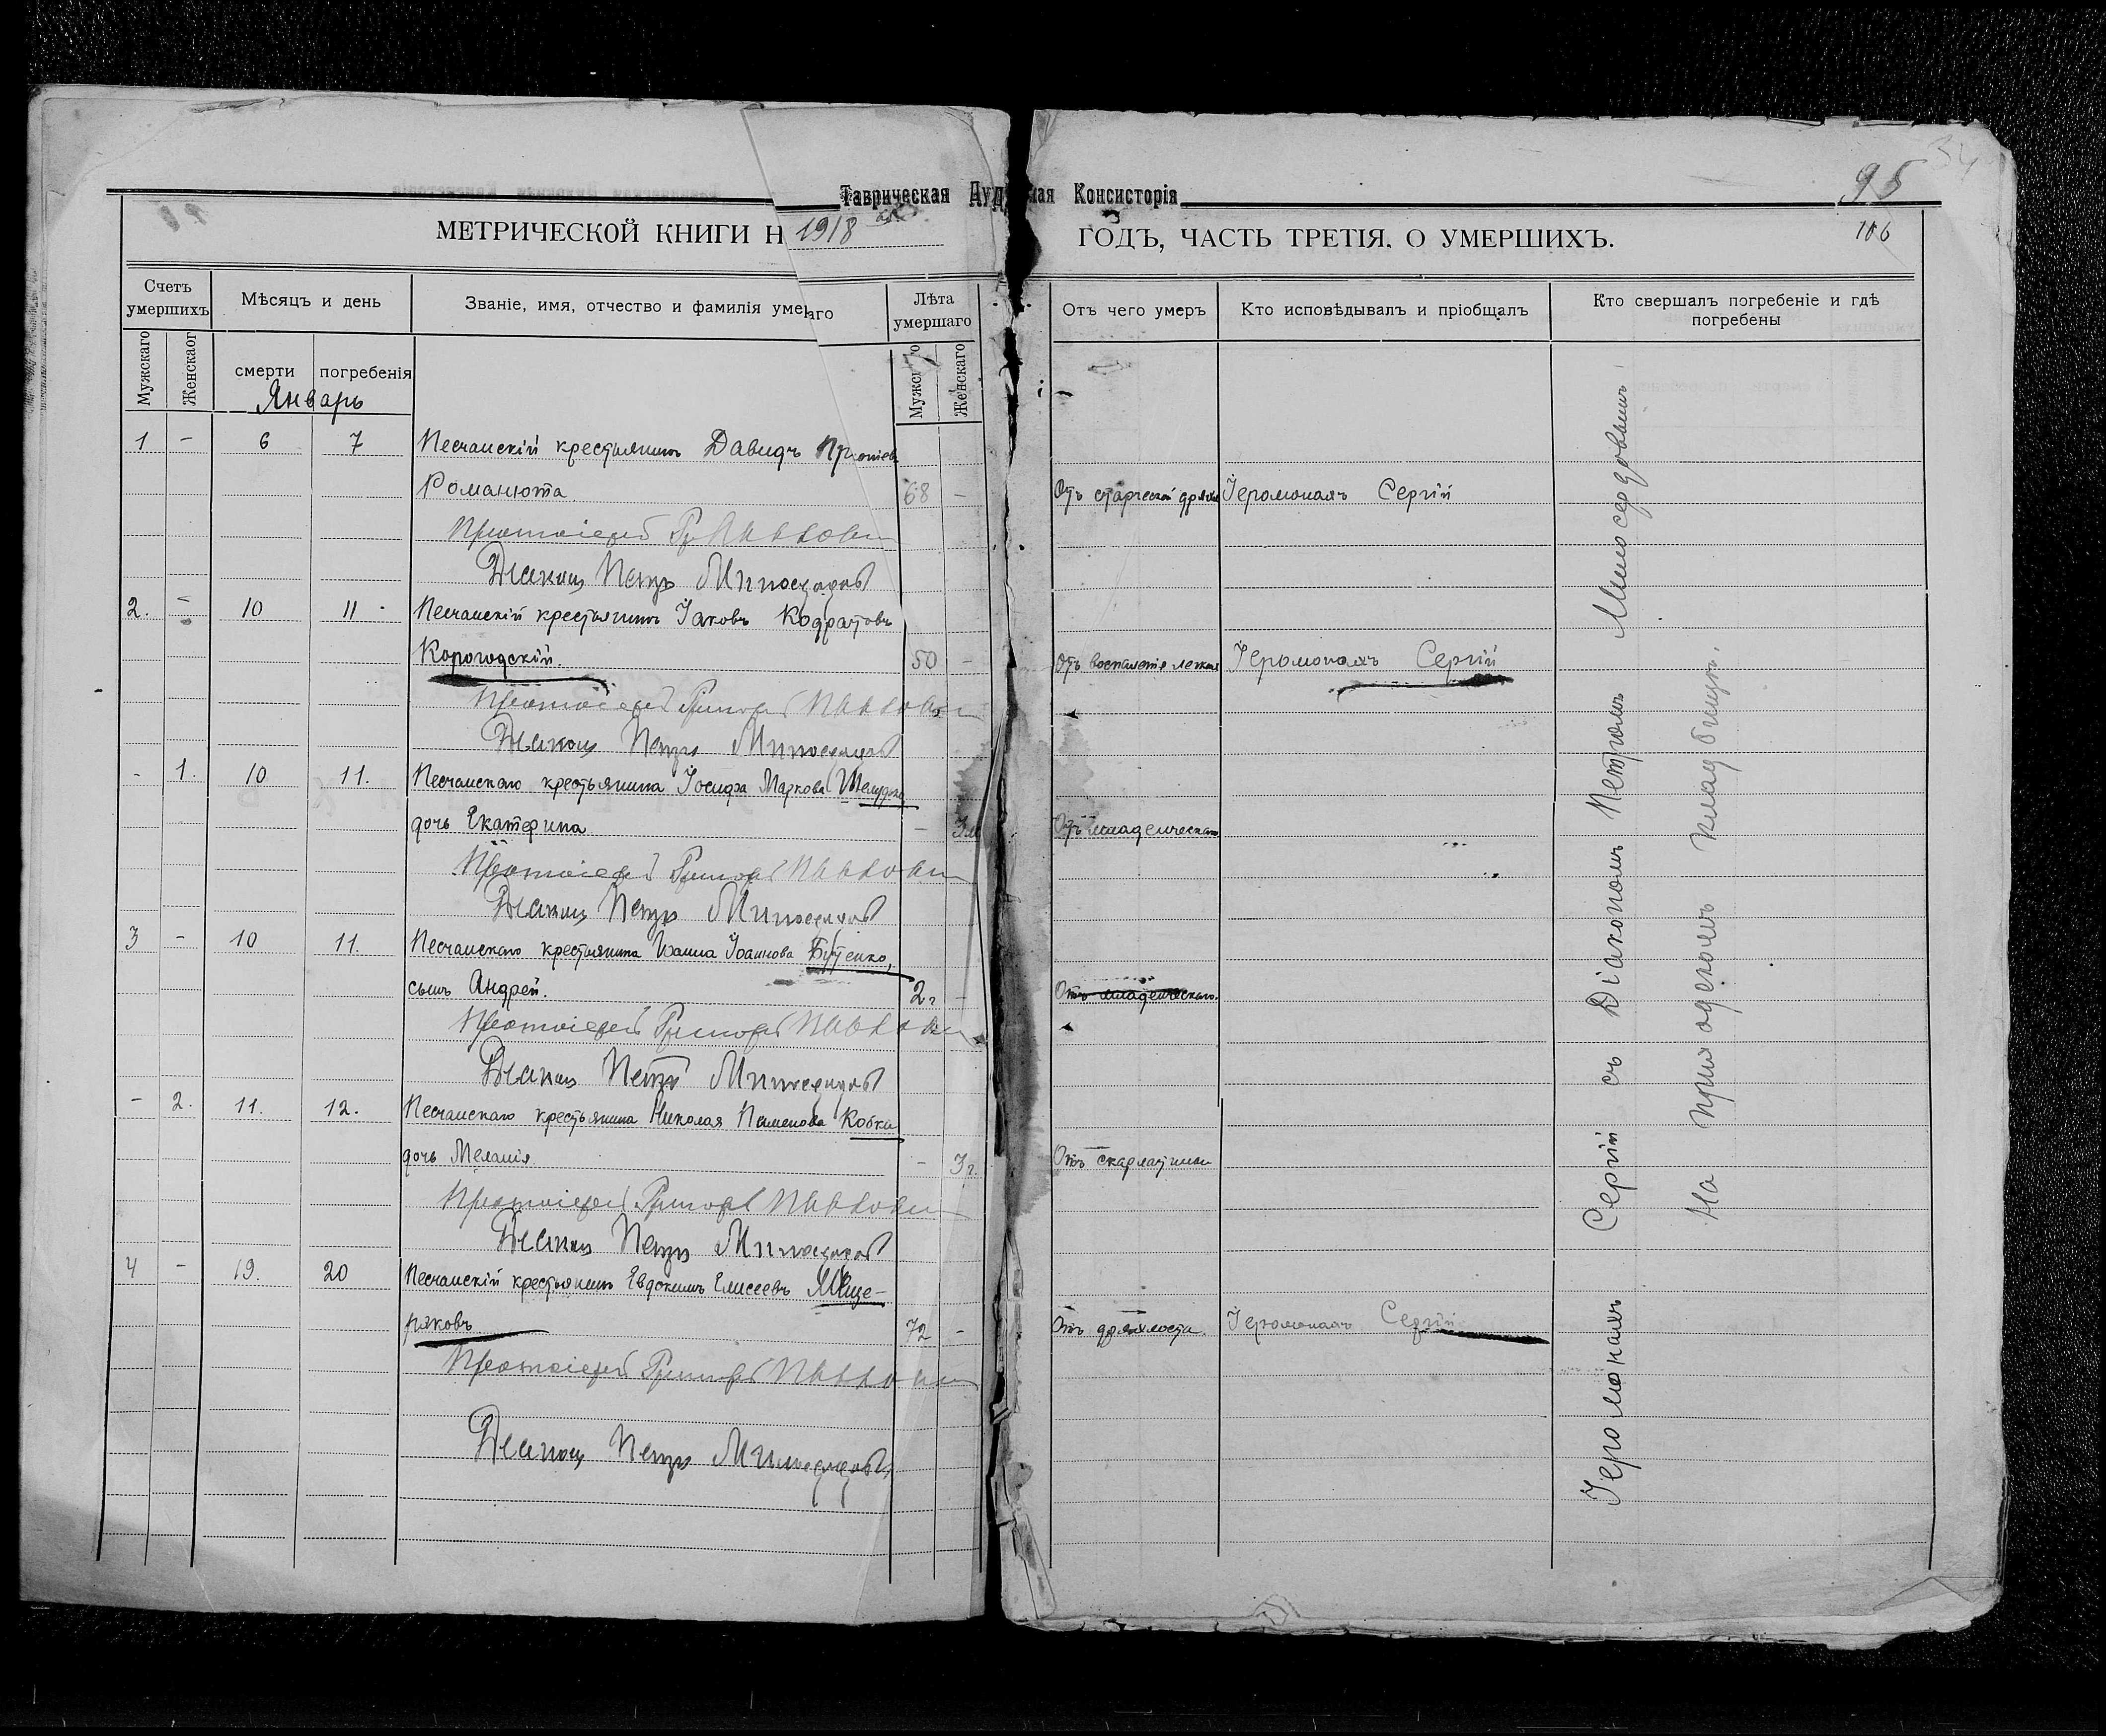 34
95
Таврическая Духовная Консисторія
МЕТРИЧЕСКОЙ КНИГИ Н 1918 ГОДЪ, ЧАСТЬ ТРЕТІЯ. О УМЕРШИХЪ.
106
Счетъ умершихъ
Мѣсяцъ и день
Званіе, имя, отчество и фамилія умершаго
Лѣта умершаго
Отъ чего умеръ
Кто исповѣдывалъ и пріобщалъ
Кто свершалъ погребеніе и гдѣ погребены
Мужскаго
Женскаог
смерти
погребенія
Мужскаго
Женскаго
Январь
1 - 6 7 Песчанскій крестьянинъ Давидъ
Романюта 68 - Отъ старческой дряхл Іеромонахъ Сергій
Протоіерей
Діаконъ Петръ Милосердовъ
2. - 10 11 Песчанскій крестьянинъ Іаковъ Кодратовъ
Корогодскій. 50 - Отъ воспаленія легкихъ Іеромонахъ Сергій
Протоіерей Григорій
Діаконъ Петръ Милосердовъ
- 1. 10 11. Песчанскаго крестьянина Іосифа Маркова
дочь Екатерина - 3м Отъ младенческаго
Протоіерей Григорій
Діаконъ Петръ Милосердовъ
3 - 10 11. Песчанскаго крестьянина Іоанна Іоаннова Бутенко,
сынъ Андрей. 2г - Отъ младенческаго.
Протоіерей Григорій
Діаконъ Петръ Милосердовъ
- 2. 11. 12. Песчанскаго крестьянина Николая Пименова Кобка
дочь Меланія - 3г. Отъ скарлатины
Протоіерей Григорій
Діаконъ Петръ Милосердовъ
4 - 19. 20 Песчанскій крестьянинъ Евдокимъ Елисеевъ Меще-
ряковъ 72 - Отъ дряхлости. Іеромонахъ Сергій
Протоіерей Григорій
Діаконъ Петръ Милосердовъ
Іеромонахъ Сергій съ Діакономъ Петромъ Милосердовымъ
На приходскомъ кладбищѣ.